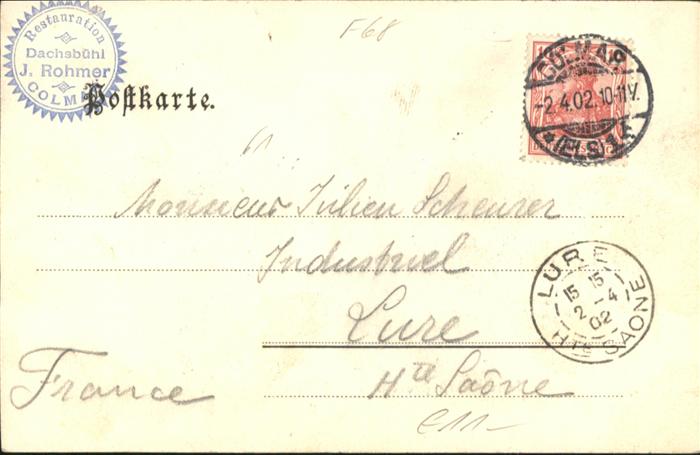 Restauration
Dachsbühl
J. Rohmer
COLMAR
Postkarte.
F68
COLMAR
-2.4.02.10-11V.
* (ELS) 1
61
Monsieur Julien Scheurer
Industriel
Lure
Hte Saône
France
LURE
15 15
2 - 4
02
Hte SAONE